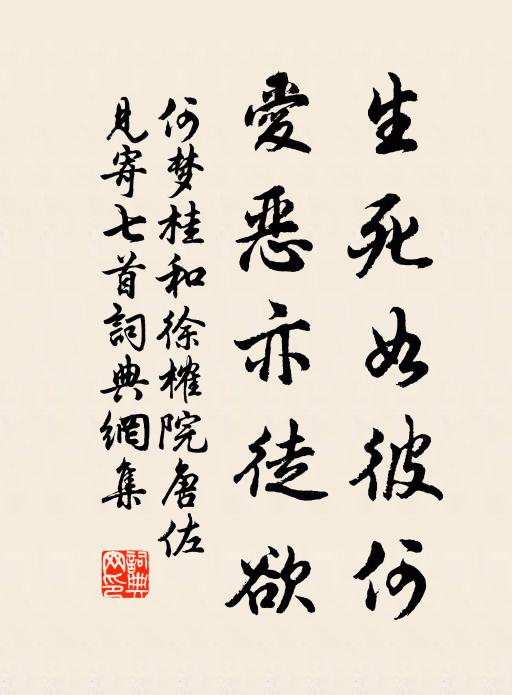 生死如彼何
愛惡亦徒欲
何梦桂和徐榷院唐佐
見寄七首詞典網集
詞典网印